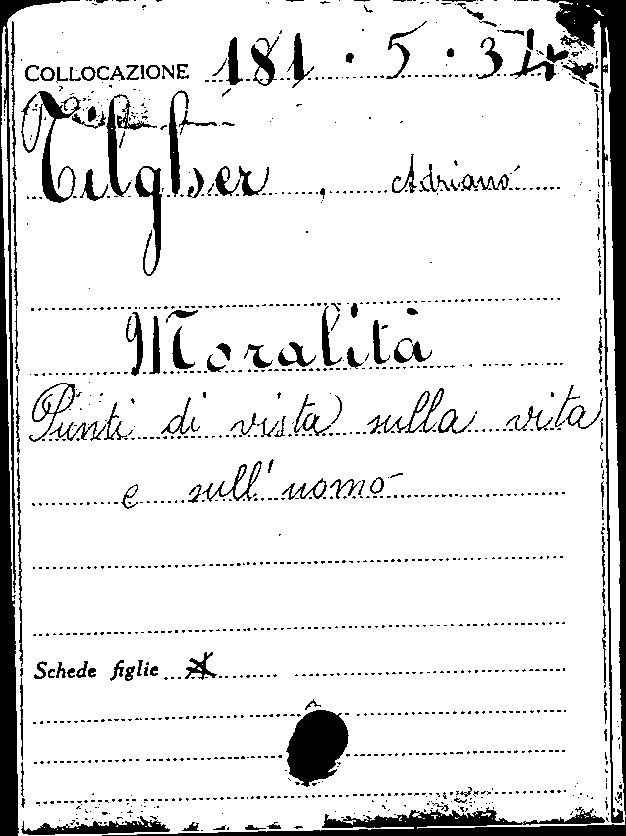 COLLOCAZIONE 181 · 5 · 34
Tilgher, Adriano
Moralità
Punti di vista sulla vita
e sull'uomo
Schede figlie